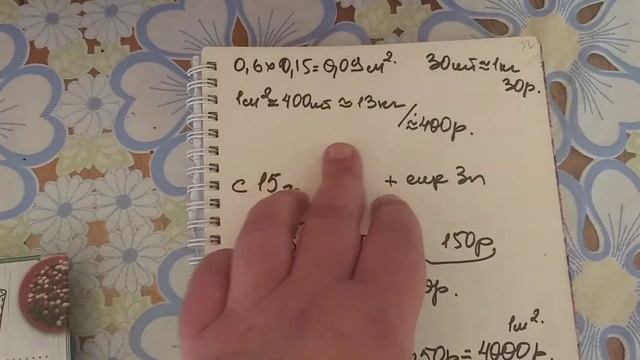 0,6×0,15=0,09м². 30шт≈1кг
30р.
1м²≈400шт≈13кг
/≈400р.
с 15 + еще 3л
150р
р.
1м².
50р=4000р.